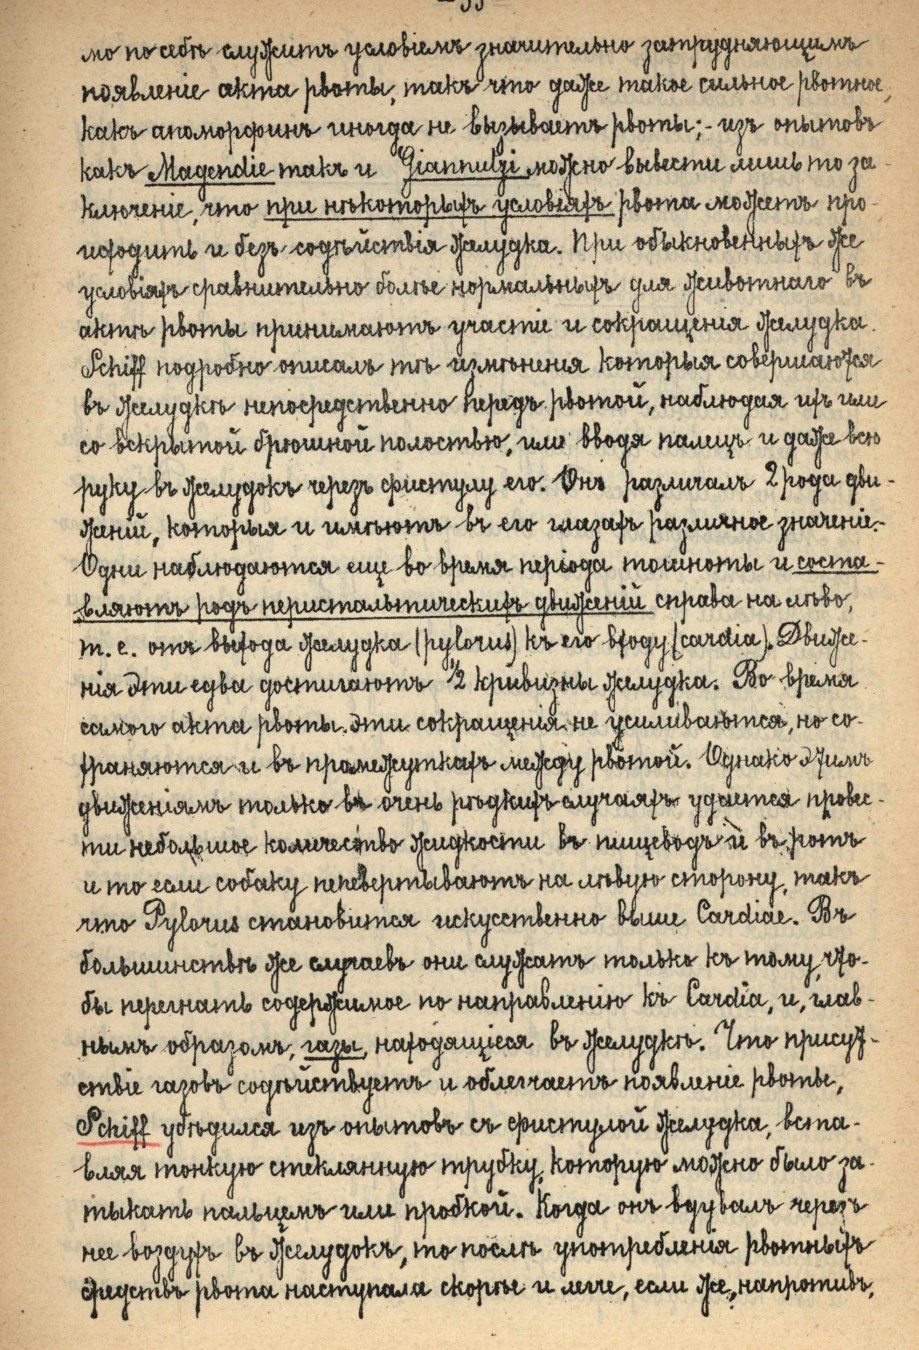 мо по себѣ служитъ условіемъ значительно затрудняющимъ
появленіе акта рвоты, такъ что даже такое сильное рвотное,
какъ апоморфинъ иногда не вызываетъ рвоты;- изъ опытовъ
какъ Magendie такъ и Giannuzzi можно вывести лишь то за-
ключеніе, что при нѣкоторыхъ условіяхъ рвота можетъ про-
исходить и безъ содѣйствія желудка. При обыкновенныхъ же
условіяхъ сравнительно болѣе нормальныхъ для животнаго въ
актѣ рвоты принимаютъ участіе и сокращенія желудка.
Schiff подробно описалъ тѣ измѣненія которыя совершаются
въ желудкѣ непосредственно передъ рвотой, наблюдая ихъ или
со вскрытой брюшной полостью, или вводя палецъ и даже всю
руку въ желудокъ черезъ фистулу его. Онъ различалъ 2 рода дви-
женій, которыя и имѣютъ въ его глазахъ различное значеніе.-
Одни наблюдаются еще во время періода тошноты и соста-
вляютъ родъ перистальтическихъ движеній справа на лѣво,
т. е. отъ выхода желудка (pylorus) къ его входу (cardia). Движе-
нія эти едва достигаютъ 1/2 кривизны желудка. Во время
самого акта рвоты эти сокращенія не усиливаются, но со-
храняются и въ промежуткахъ между рвотой. Однако этимъ
движеніямъ только въ очень рѣдкихъ случаяхъ удается провес-
ти небольшое количество жидкости въ пищеводъ и въ ротъ
и то если собаку перевертываютъ на лѣвую сторону, такъ
что Pylorus становится искусственно выше Cardiae. Въ
большинствѣ же случаевъ они служатъ только къ тому, что-
бы перегнать содержимое по направленію къ Cardia, и, глав-
нымъ образомъ, газы, находящіеся въ желудкѣ. Что присут-
ствіе газовъ содѣйствуетъ и облегчаетъ появленіе рвоты,
Schiff убѣдился изъ опытовъ съ фистулой желудка, вста-
вляя тонкую стеклянную трубку, которую можно было за-
тыкать пальцемъ или пробкой. Когда онъ вдувалъ черезъ
нее воздухъ въ желудокъ, то послѣ употребленія рвотныхъ
средствъ рвота наступала скорѣе и легче, если же, напротивъ,